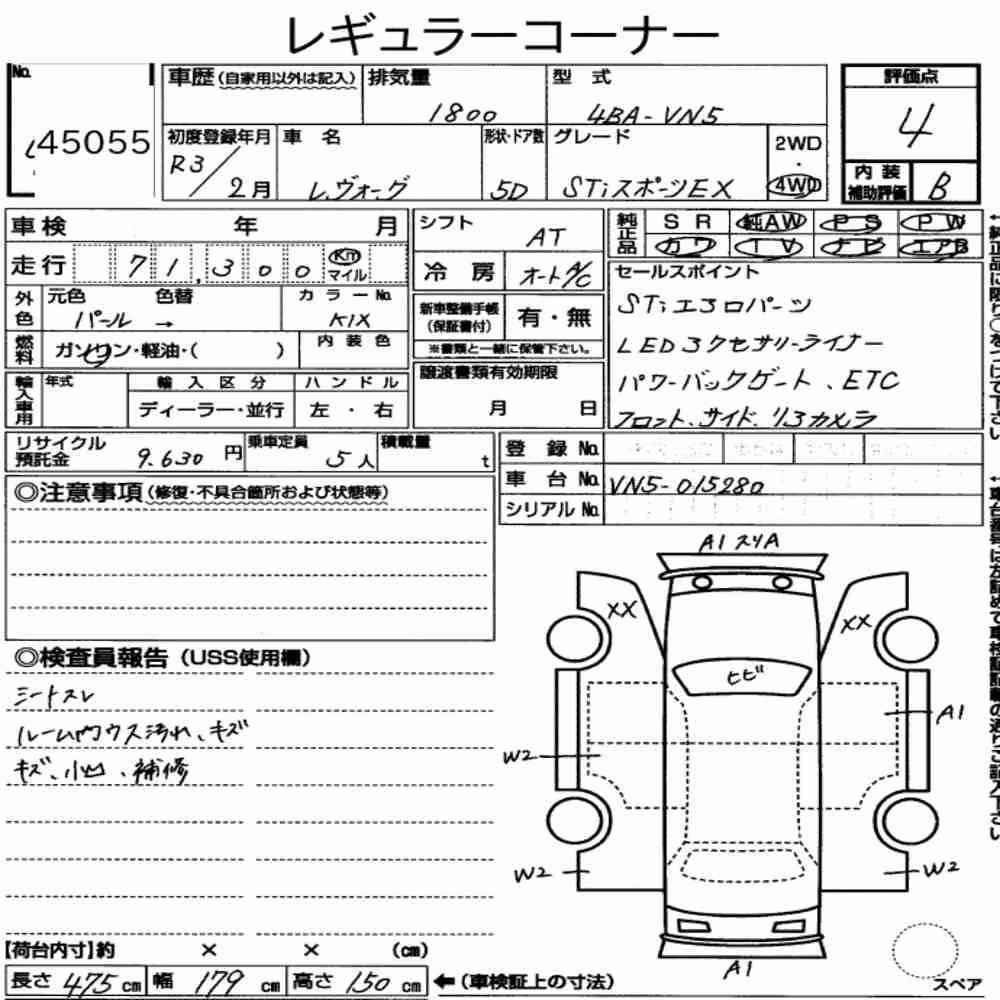 レギュラーコーナー
No. 45055
車歴(自家用以外は記入) 排気量 1800 型式 4BA-VN5
初度登録年月 R3/2月 車名 レヴォーグ 形状・ドア数 5D グレード STiスポーツEX 2WD・4WD
評価点 4
内装補助評価 B
車検 年 月
走行 71,300 Km マイル
外色 元色 パール 色替 → カラーNo. K1X
燃料 ガソリン・軽油・( ) 内装色
輸入車用 年式 輸入区分 ディーラー・並行 ハンドル 左・右
シフト AT
冷房 オートA/C
新車整備手帳(保証書付) 有・無
※書類と一緒に保管下さい。
譲渡書類有効期限 月 日
純正品 SR 純AW PS PW
カワ TV ナビ エアB
セールスポイント
STiエアロパーツ
LEDアクセサリーライナー
パワーバックゲート、ETC
フロント、サイド、リアカメラ
リサイクル預託金 9,630円 乗車定員 5人 積載量 t
登録No.
車台No. VN5-015280
シリアルNo.
◎注意事項(修復・不具合箇所および状態等)
◎検査員報告(USS使用欄)
シートスレ
ルーム内ウス汚れ、キズ
キズ、小凹、補修
A1 スリA
XX
XX
ヒビ
A1
W2
W2
W2
A1
スペア
【荷台内寸】約 × × (cm)
長さ 475cm 幅 179cm 高さ 150cm ←(車検証上の寸法)
↑純正品に限り○をつけて下さい